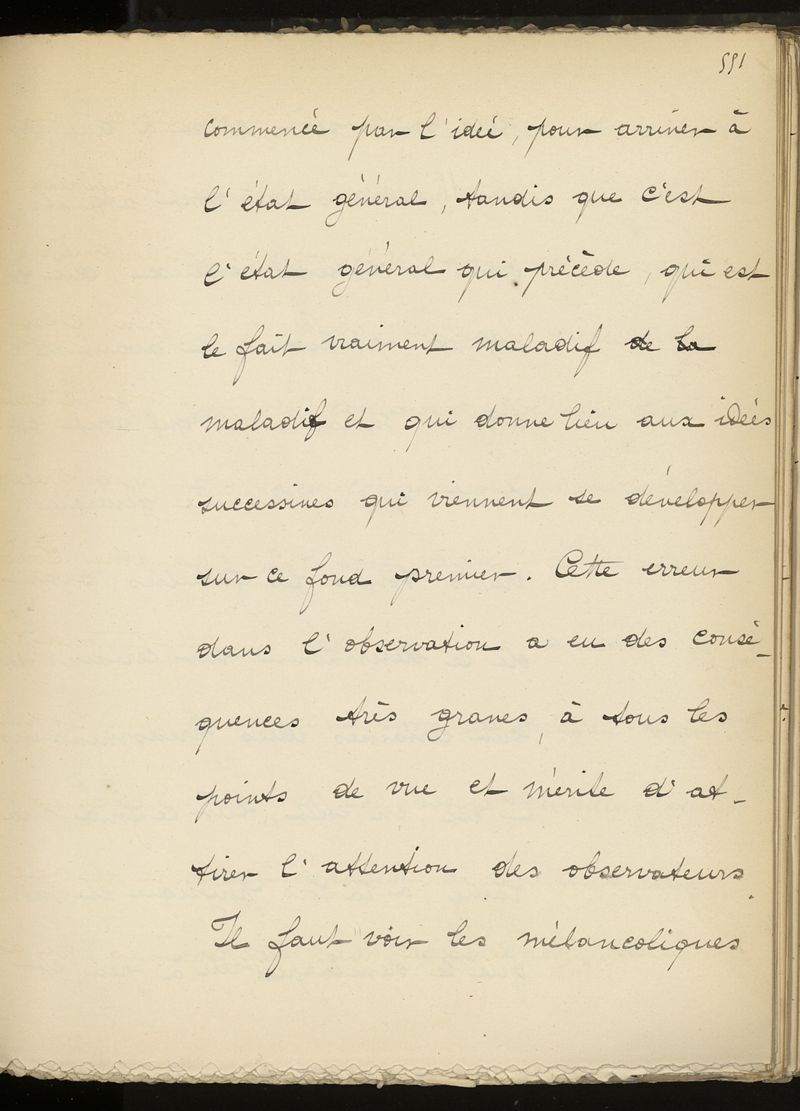 551
commencé par l'idée, pour arriver à
l'état général, tandis que c'est
l'état général qui précède, qui est
le fait vraiment maladif de la
maladif et qui donne lieu aux idées
successives qui viennent se développer
sur ce fond premier. Cette erreur
dans l'observation a eu des consé-
quences très graves, à tous les
points de vue et mérite d'at-
tirer l'attention des observateurs.
Il faut voir les mélancoliques